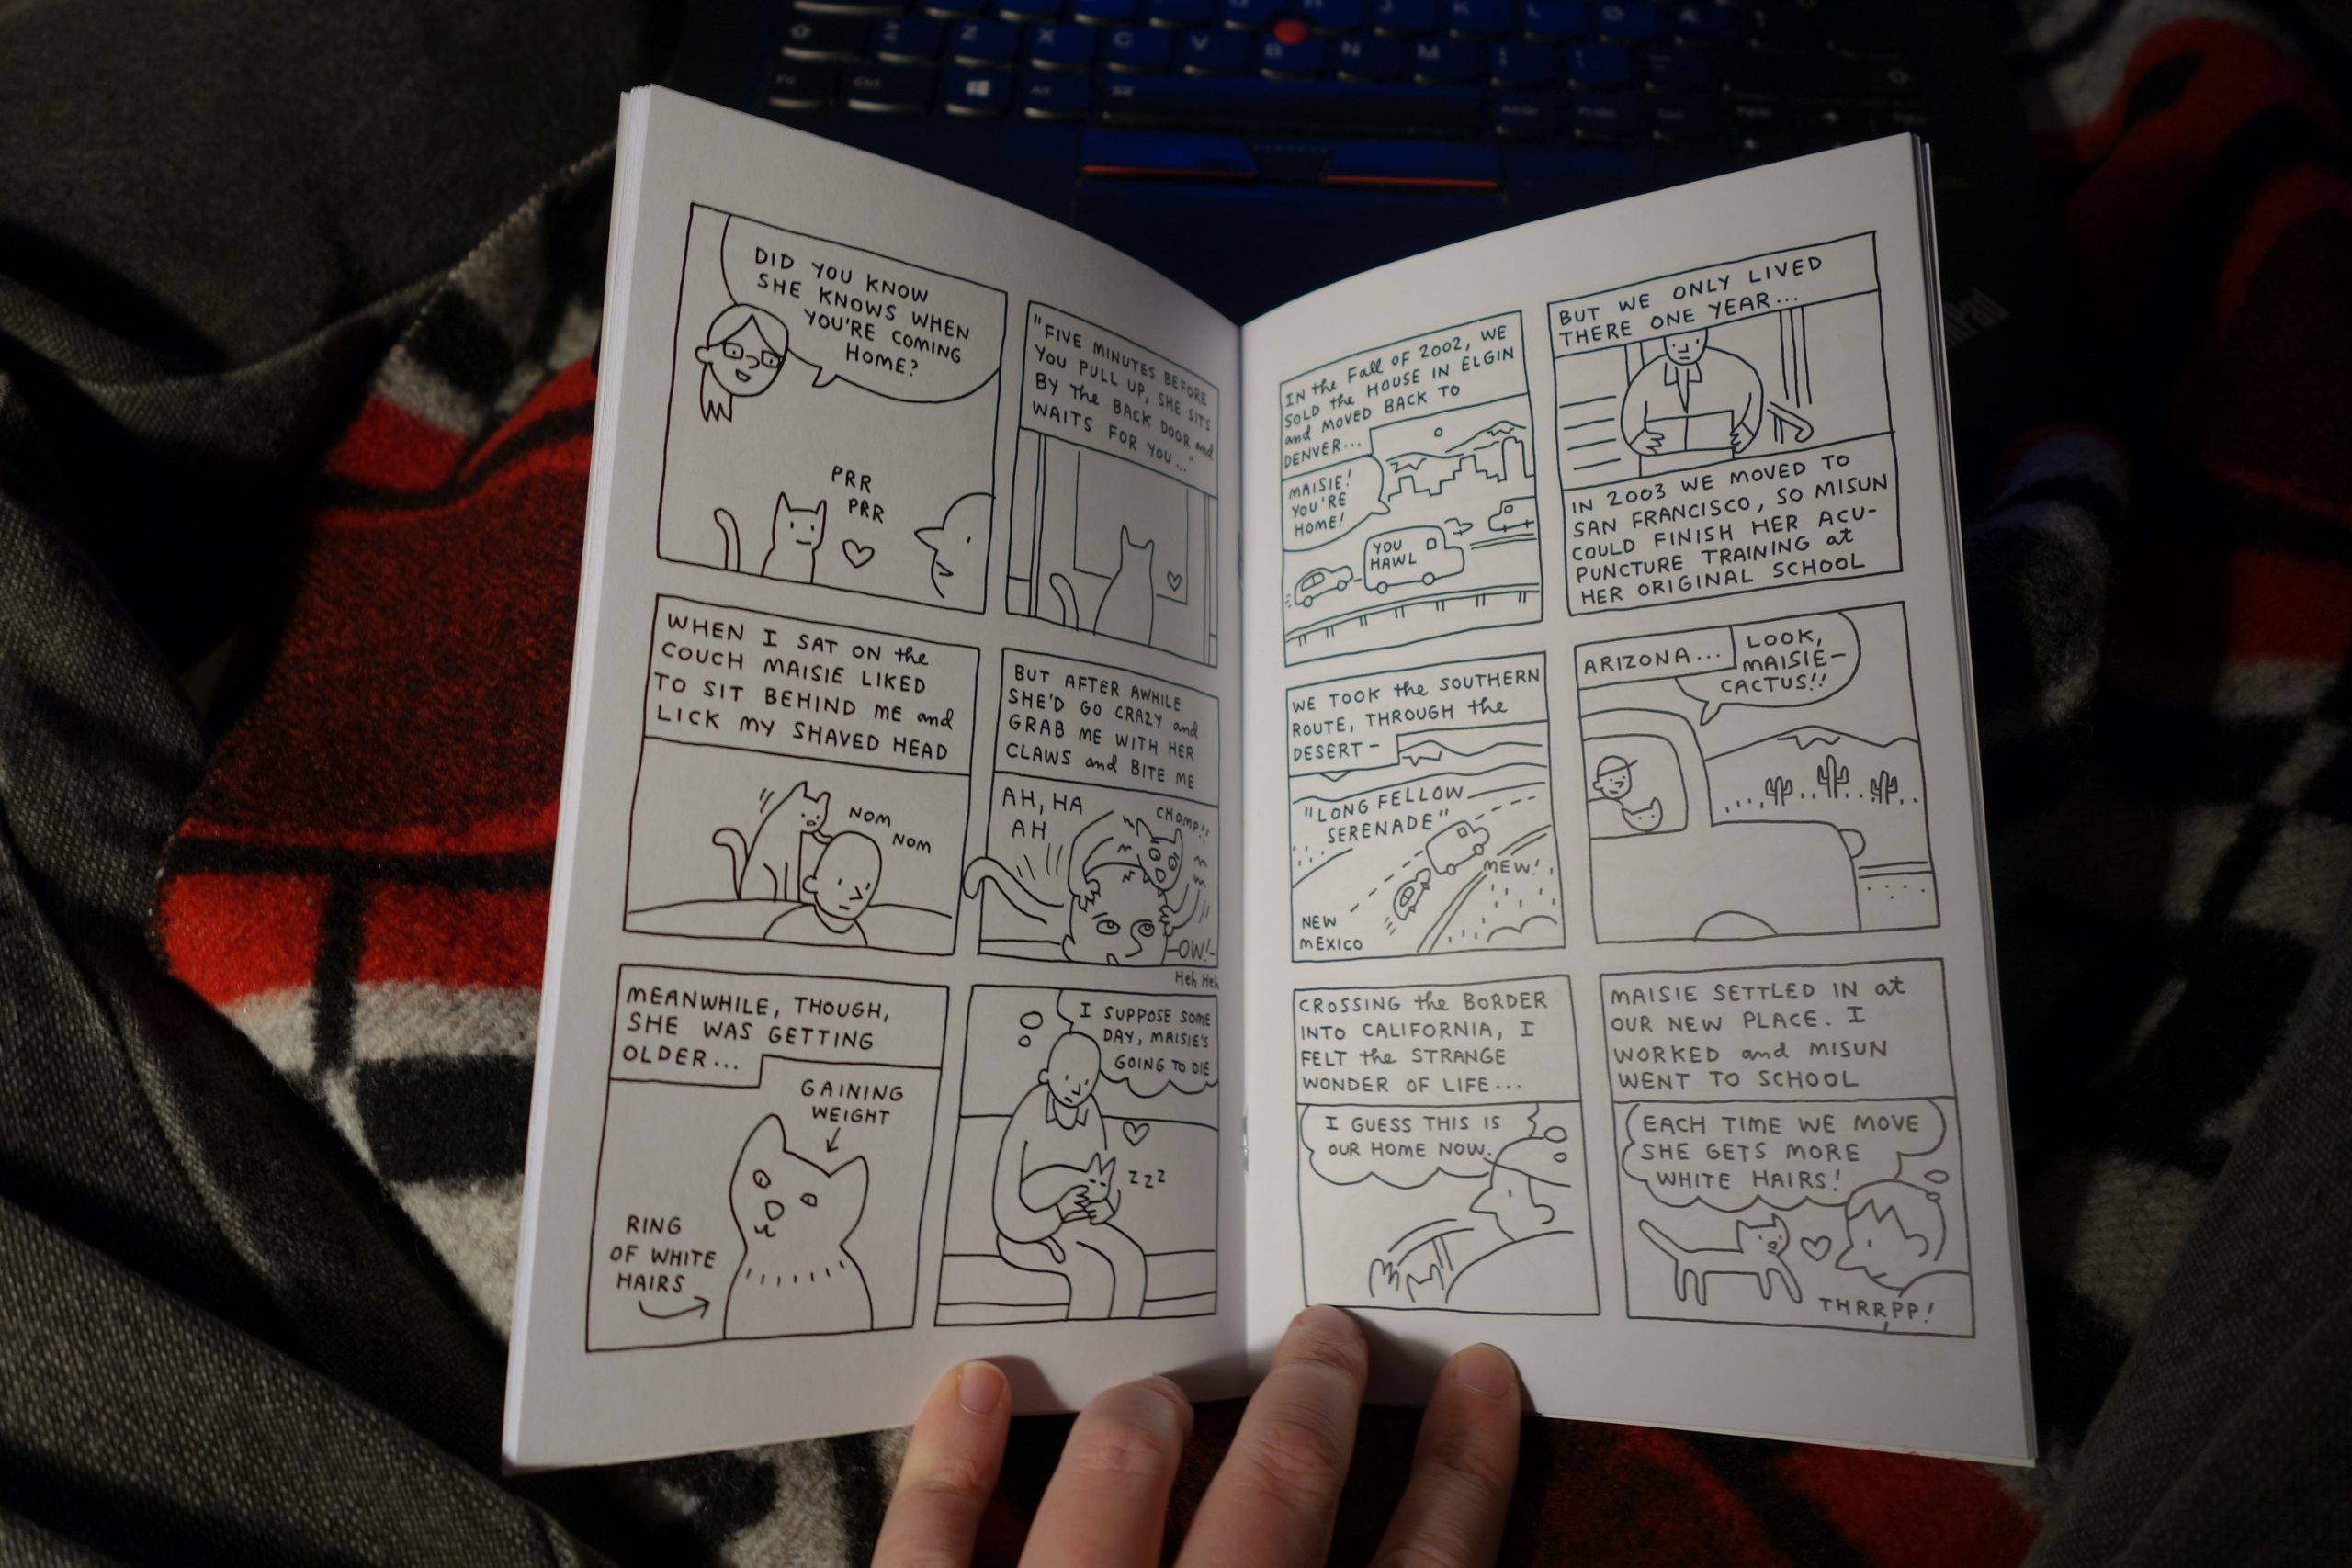 DID YOU KNOW
SHE KNOWS WHEN
YOU'RE COMING
HOME?
PRR
PRR
"FIVE MINUTES BEFORE
YOU PULL UP, SHE SITS
BY the BACK DOOR and
WAITS FOR YOU..."
WHEN I SAT ON the
COUCH MAISIE LIKED
TO SIT BEHIND ME and
LICK MY SHAVED HEAD
NOM
NOM
BUT AFTER AWHILE
SHE'D GO CRAZY and
GRAB ME WITH HER
CLAWS and BITE ME
AH, HA
AH
CHOMP!!
-OW!-
Heh Heh
MEANWHILE, THOUGH,
SHE WAS GETTING
OLDER...
GAINING
WEIGHT
RING
OF WHITE
HAIRS
I SUPPOSE SOME
DAY, MAISIE'S
GOING TO DIE
ZZZ
IN the Fall OF 2002, WE
SOLD the HOUSE IN ELGIN
and MOVED BACK TO
DENVER...
MAISIE!
YOU'RE
HOME!
YOU
HAWL
BUT WE ONLY LIVED
THERE ONE YEAR...
IN 2003 WE MOVED TO
SAN FRANCISCO, SO MISUN
COULD FINISH HER ACU-
PUNCTURE TRAINING at
HER ORIGINAL SCHOOL
WE TOOK the SOUTHERN
ROUTE, THROUGH the
DESERT-
"LONG FELLOW
SERENADE"
MEW!
NEW
MEXICO
ARIZONA...
LOOK,
MAISIE-
CACTUS!!
CROSSING the BORDER
INTO CALIFORNIA, I
FELT the STRANGE
WONDER OF LIFE...
I GUESS THIS IS
OUR HOME NOW.
MAISIE SETTLED IN at
OUR NEW PLACE. I
WORKED and MISUN
WENT TO SCHOOL
EACH TIME WE MOVE
SHE GETS MORE
WHITE HAIRS!
THRRPP!